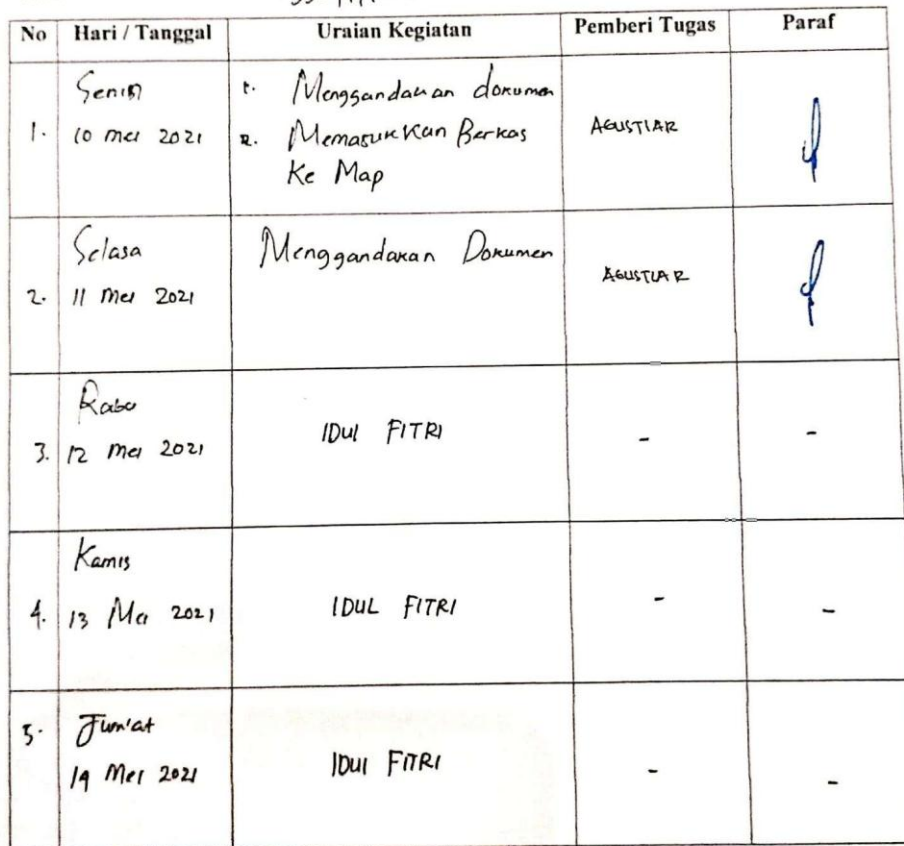 No Hari / Tanggal Uraian Kegiatan Pemberi Tugas Paraf
1. Senin
10 mei 2021
1. Menggandakan dokumen
2. Memasukkan Berkas
Ke Map
AGUSTIAR
2. Selasa
11 Mei 2021
Menggandakan Dokumen
AGUSTIAR
3. Rabu
12 mei 2021
IDUL FITRI
-
-
4. Kamis
13 Mei 2021
IDUL FITRI
-
-
5. Jum'at
14 Mei 2021
IDUL FITRI
-
-